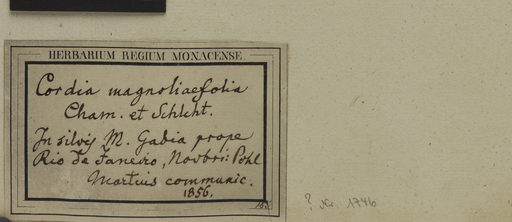 HERBARIUM REGIUM MONACENSE.
Cordia magnoliaefolia
Cham. et Schlcht.
In silvis M. Gabia prope
Rio de Janeiro, Novbri: Pohl
Martius communic.
1856.
? Nr. 1746